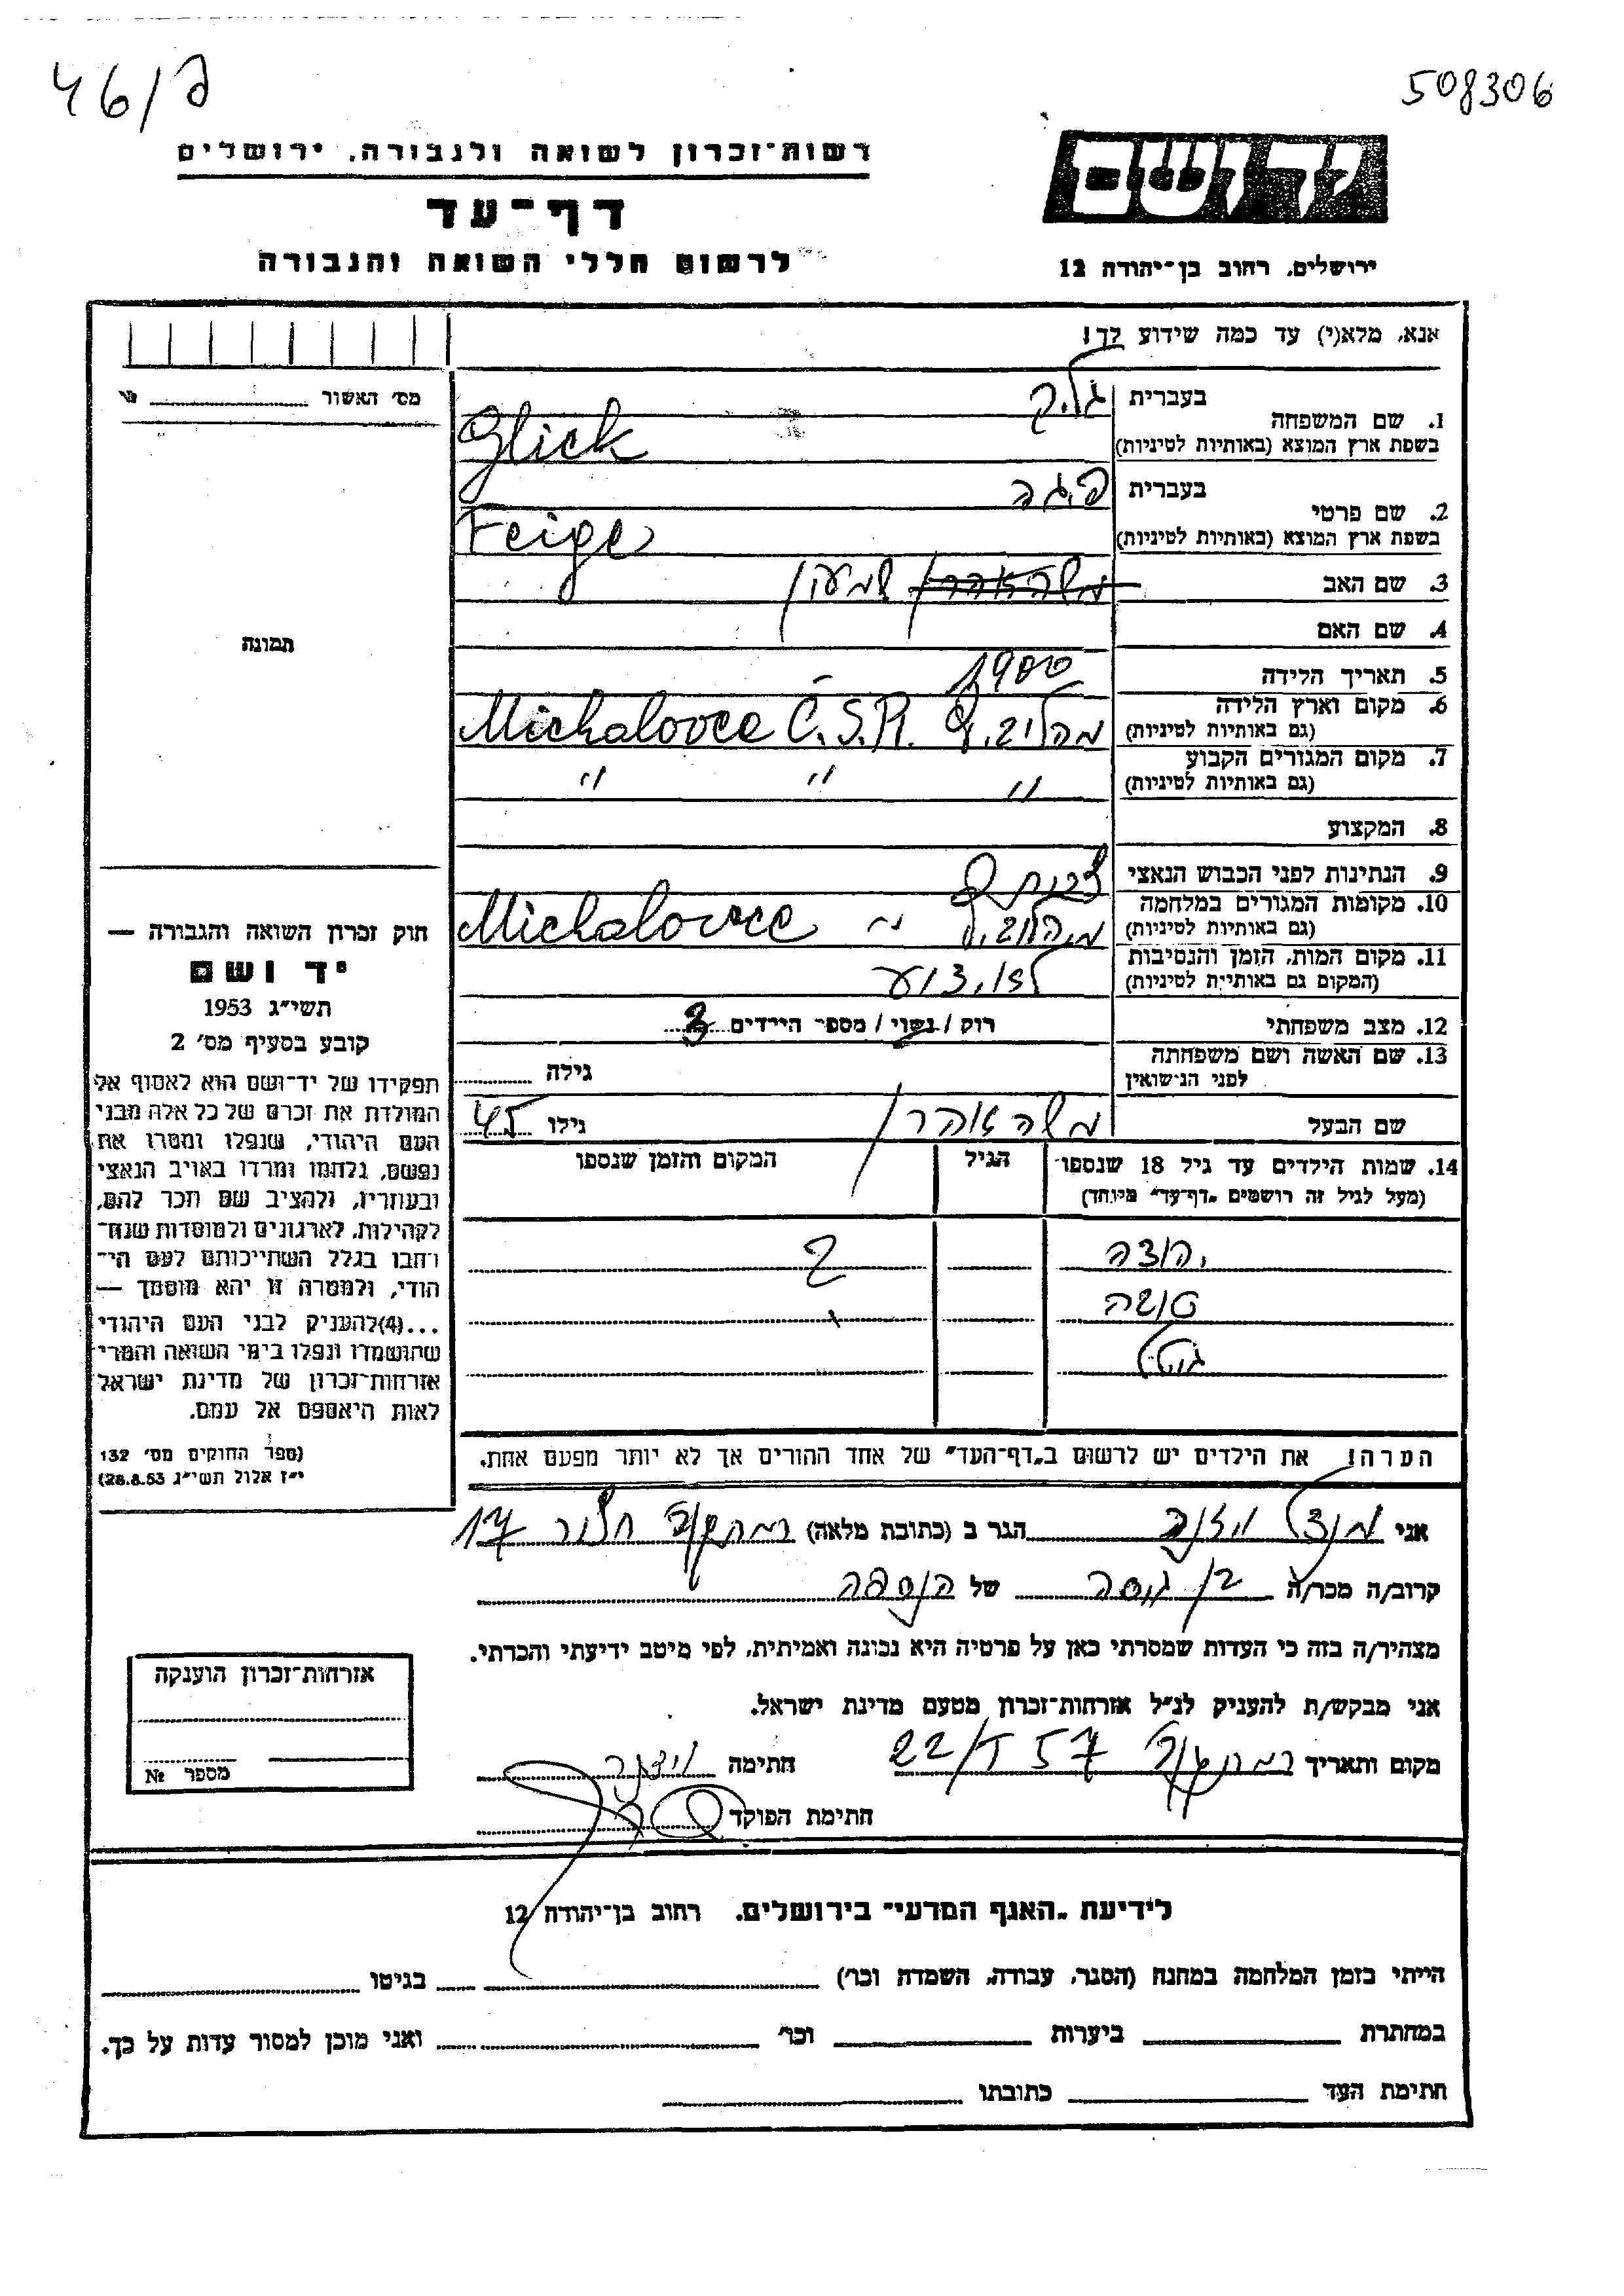 46/פ
508306
רשות־זכרון לשואה ולגבורה, ירושלים
יד ושם
דף־עד
לרשום חללי השואה והגבורה
ירושלים, רחוב בן־יהודה 12
אנא, מלא(י) עד כמה שידוע לך!
מס׳ האשור
1. שם המשפחה בעברית גליק
בשפת ארץ המוצא (באותיות לטיניות) Glick
2. שם פרטי בעברית פיגה
בשפת ארץ המוצא (באותיות לטיניות) Feige
3. שם האב משה אהרן שמעון
4. שם האם
5. תאריך הלידה 1900
6. מקום וארץ הלידה
(גם באותיות לטיניות) Michalovce Č.S.R.
7. מקום המגורים הקבוע
(גם באותיות לטיניות) " " "
8. המקצוע
9. הנתינות לפני הכבוש הנאצי
10. מקומות המגורים במלחמה
(גם באותיות לטיניות) Michalovce
11. מקום המות, הזמן והנסיבות
(המקום גם באותיות לטיניות) לא ידוע
12. מצב משפחתי רווק / נשוי / מספר הילדים 3
13. שם האשה ושם משפחתה
לפני הנישואין גילה
שם הבעל משה אהרן גילו 45
14. שמות הילדים עד גיל 18 שנספו הגיל המקום והזמן שנספו
(מעל לגיל זה רושמים „דף־עד” מיוחד)
הערה! את הילדים יש לרשום ב„דף־העד” של אחד ההורים אך לא יותר מפעם אחת.
תמונה
חוק זכרון השואה והגבורה —
יד ושם
תשי״ג 1953
קובע בסעיף מס׳ 2
תפקידו של יד־ושם הוא לאסוף אל
המולדת את זכרם של כל אלה מבני
העם היהודי, שנפלו ומסרו את
נפשם, נלחמו ומרדו באויב הנאצי
ובעוזריו, ולהציב שם וזכר להם,
לקהילות, לארגונים ולמוסדות שנח־
רבו בגלל השתייכותם לעם הי־
הודי, ולמטרה זו יהא מוסמך —
...(4) להעניק לבני העם היהודי
שהושמדו ונפלו בימי השואה והמרי
אזרחות־זכרון של מדינת ישראל
לאות היאספם אל עמם.
(ספר החוקים מס׳ 132
י״ז אלול תשי״ג 28.8.53)
אני הגר ב (כתובת מלאה) 17
קרוב/ה מכר/ה בן גיסה של הנספה
מצהיר/ה בזה כי העדות שמסרתי כאן על פרטיה היא נכונה ואמיתית, לפי מיטב ידיעתי והכרתי.
אני מבקש/ת להעניק לנ״ל אזרחות־זכרון מטעם מדינת ישראל.
מקום ותאריך 22/I 57 חתימה
חתימת הפוקד
אזרחות־זכרון הוענקה
מספר №
לידיעת „האגף המדעי” בירושלים, רחוב בן־יהודה 12
הייתי בזמן המלחמה במחנה (הסגר, עבודה, השמדה וכר׳) בגיטו
במחתרת ביערות וכר׳ ואני מוכן למסור עדות על כך.
חתימת העד כתובתו